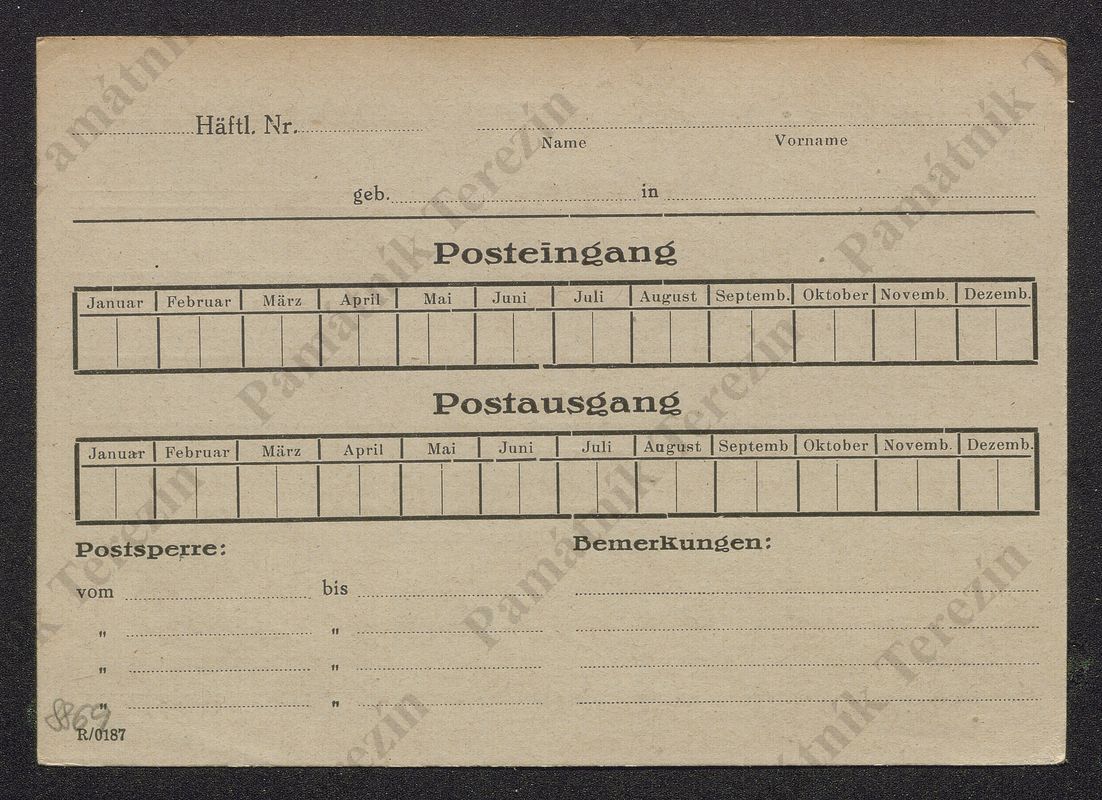 Häftl. Nr.
Name Vorname
geb. in
Posteingang
Januar Februar März April Mai Juni Juli August Septemb. Oktober Novemb. Dezemb.
Postausgang
Januar Februar März April Mai Juni Juli August Septemb Oktober Novemb. Dezemb.
Postsperre: Bemerkungen:
vom bis
" "
" "
" "
8869
R/0187
Památník Terezín